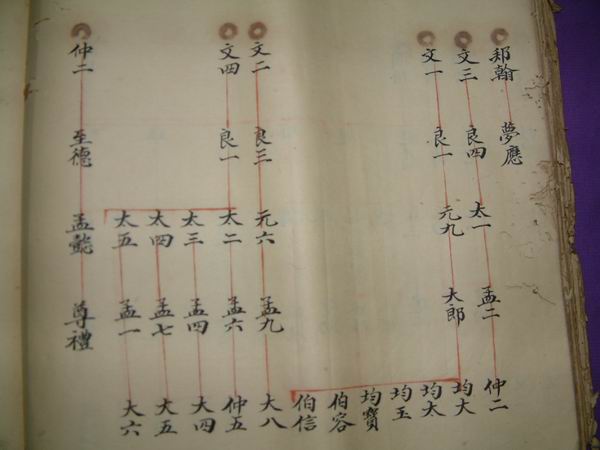 邦翰 夢應
文三 良四 太一 孟二 仲二
文一 良一 元九 大郎 均大
均太
均玉
均寶
伯容
伯信
文二 良三 元六 孟九 大八
文四 良一 太二 孟六 仲五
太三 孟四 大四
太四 孟七 大五
太五 孟一 大六
仲二 至德 孟懿 尊禮